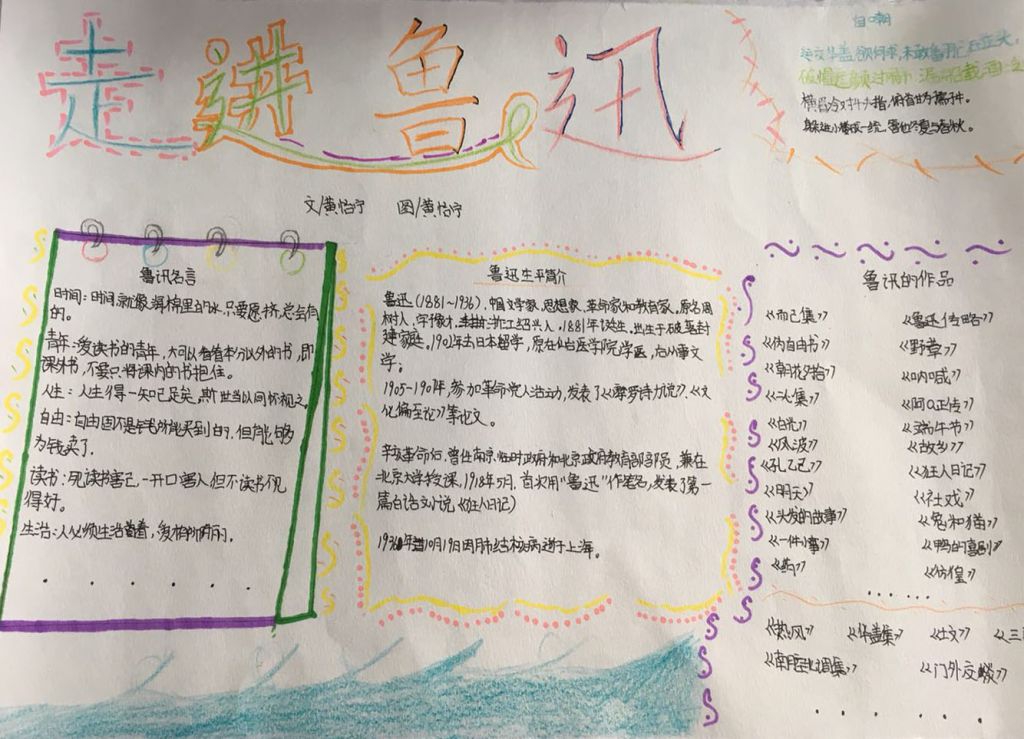 走进鲁迅
自嘲
运交华盖欲何求，未敢翻身已碰头，
破帽遮颜过闹市，漏船载酒
横眉冷对千夫指，俯首甘为孺子牛。
躲进小楼成一统，管他冬夏与春秋。
文/黄怡宁 图/黄怡宁
鲁讯名言
时间：时间就像海棉里的水，只要愿挤，总会有
的。
青年：爱读书的青年，大可以看看本分以外的书，即
课外书，不要只将课内的书抱住。
人生：人生得一知己足矣，斯世当以同怀视之。
自由：自由固不是钱所能买到的，但能够
为钱卖了。
读书：
得好。
生活：人必须生活着，爱
. . . . . .
鲁迅生平简介
鲁迅（1881~1936），中国文学家、思想家、革命家和教育家，原名周
树人，字豫才，浙江绍兴人，1881年诞生，出生于破落封
建家庭。1902年去日本留学，原在仙台医学院学医，后从事文
学。
1905-1907年，参加革命党人活动，发表了《摩罗诗力说》、《文
化偏至论》等论文。
辛亥革命后，曾任南京临时政府和北京政府教育部部员，兼在
北京大学授课，1918年5月，首次用“鲁迅”作笔名，发表了第一
篇白话文小说《狂人日记》
1936年10月19日因肺结核病逝于上海。
鲁讯的作品
《而己集》 《鲁迅传略》
《伪自由书》 《野草》
《朝花夕拾》 《呐喊》
《二心集》 《阿Q正传》
《白光》 《端午节》
《风波》 《故乡》
《孔乙己》 《狂人日记》
《明天》 《社戏》
《头发的故事》 《兔和猫》
《一件小事》 《鸭的喜剧》
《药》 《彷徨》
......
《热风》 《华盖集》 《坟》 《三
《南腔北调集》 《门外文谈》
. . . . . .